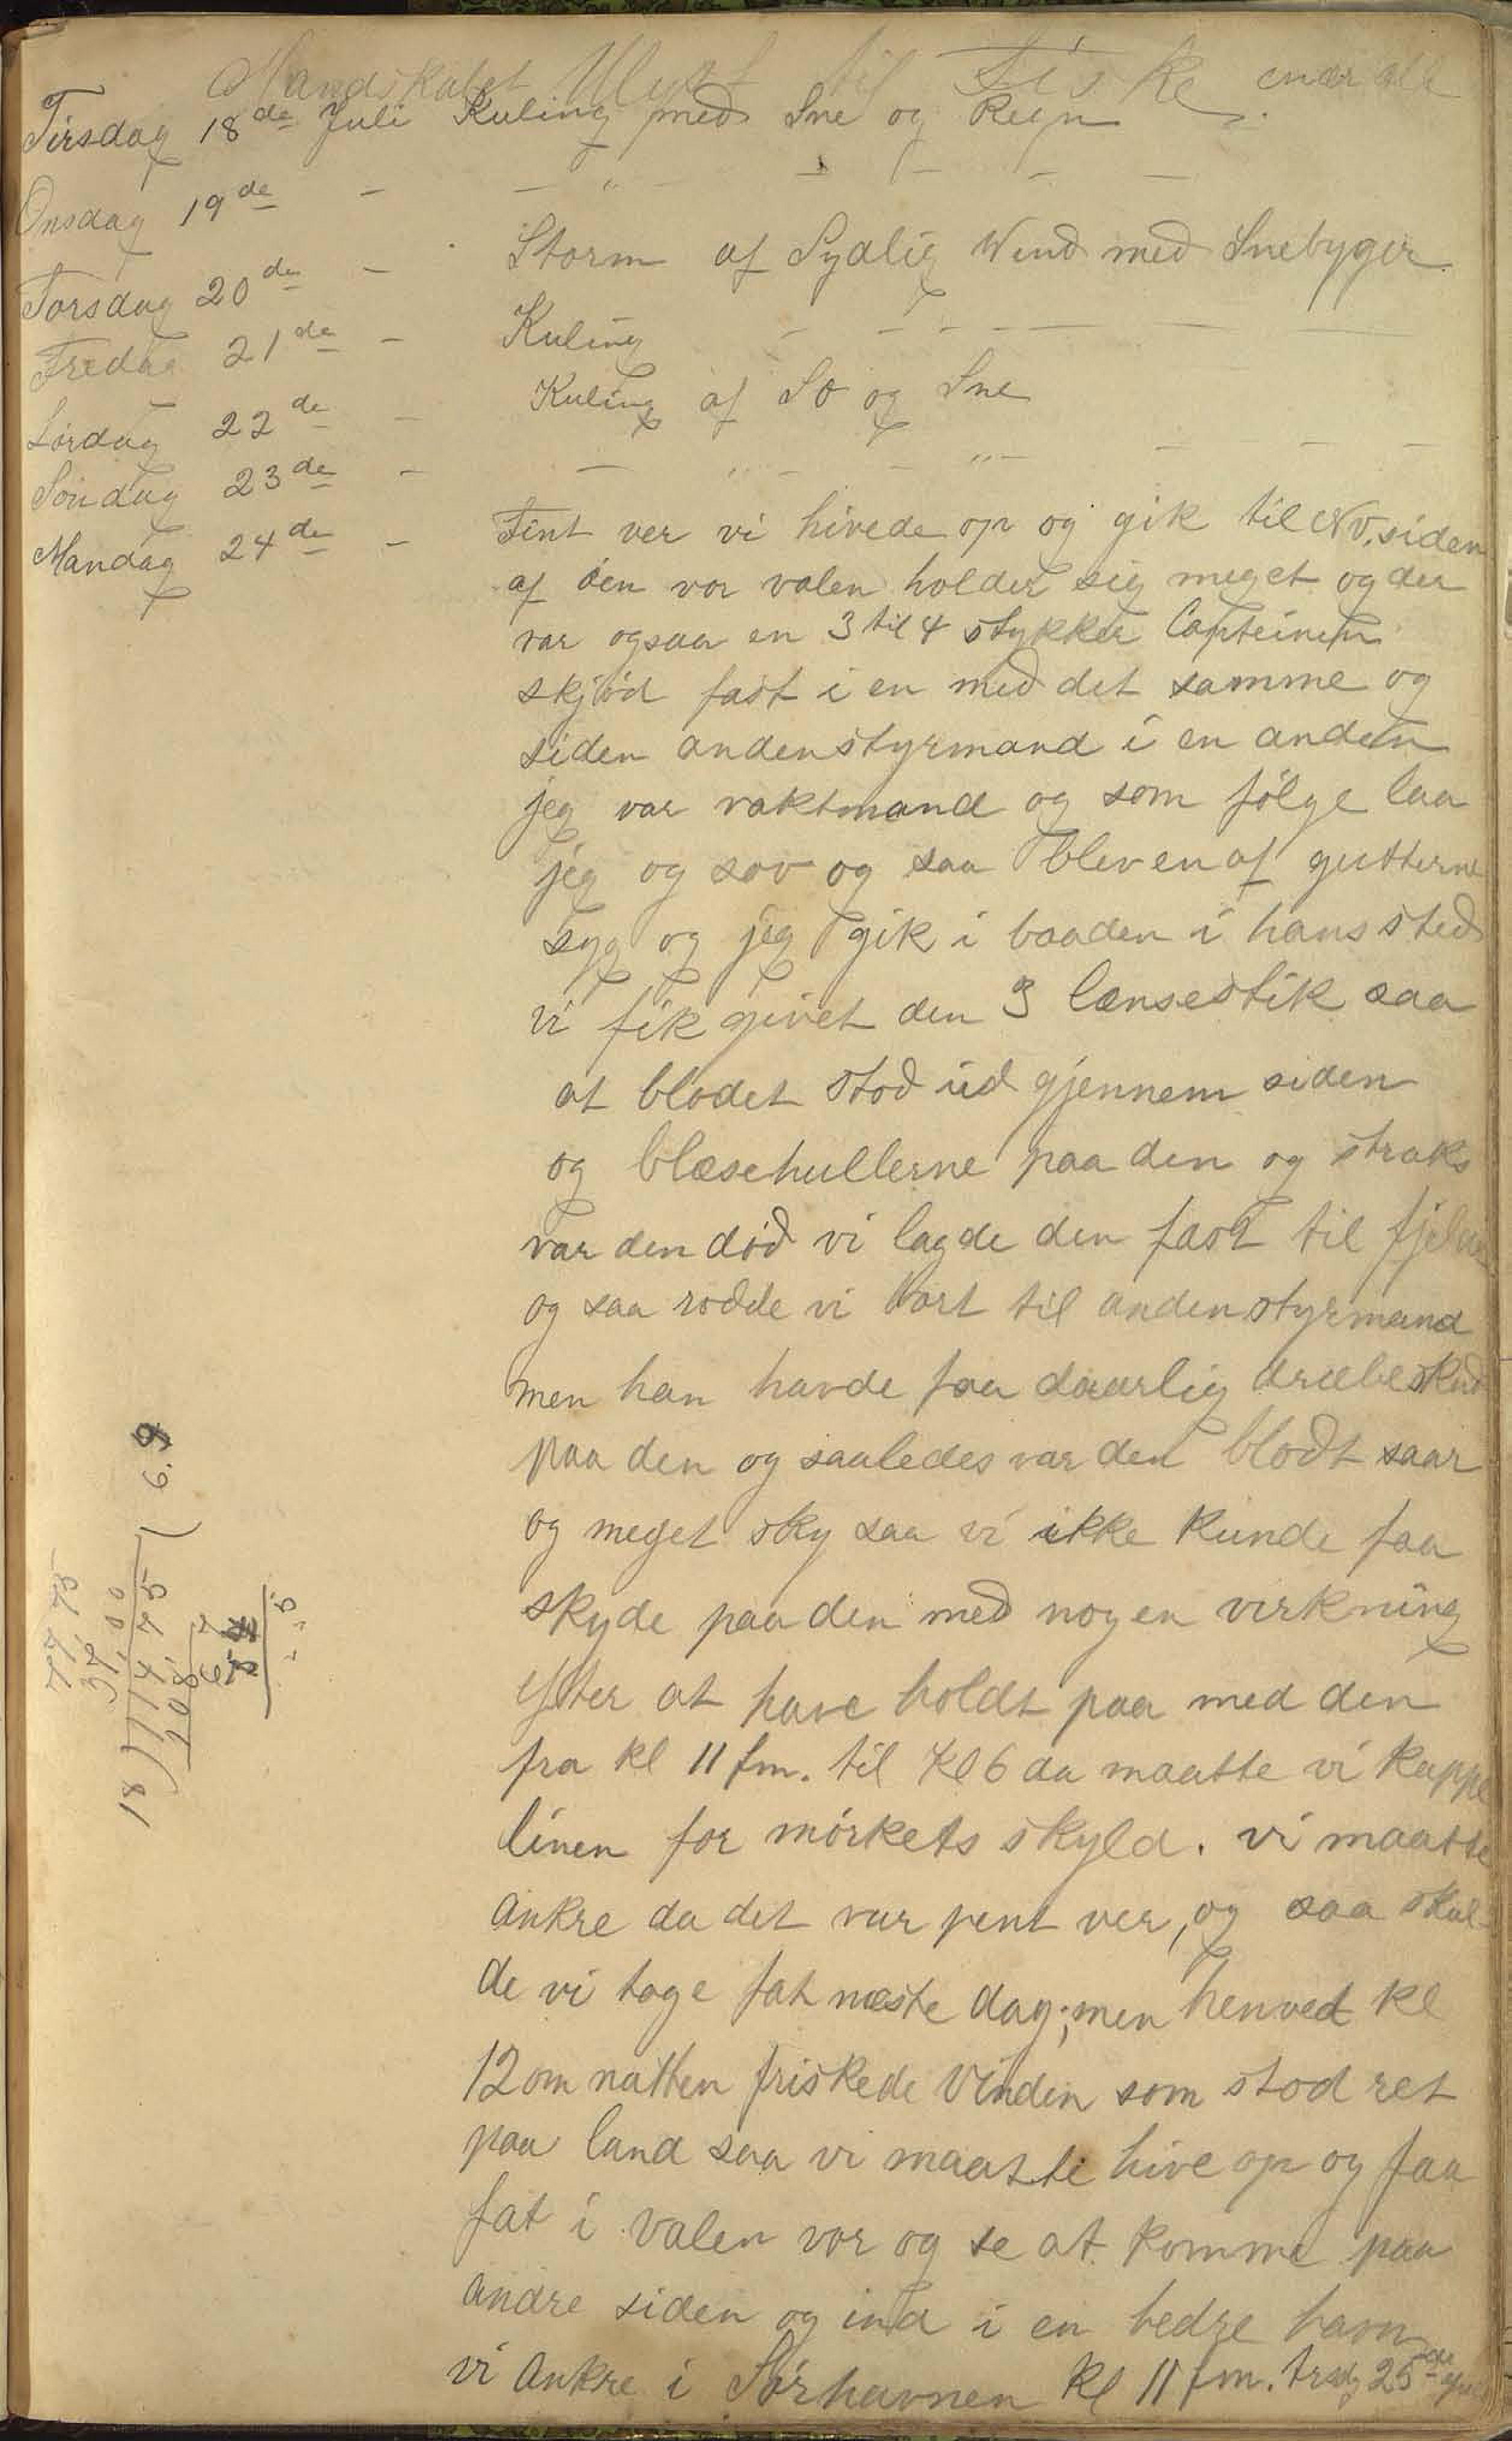 Mandskabet til Fiske
Tirsdag 18de Juli Kuling med Sne og Regn
Onsdag 19de - - " - - - - -
Torsdag 20de - Storm af Sydlig Vind med Snebyger
Fredag 21de - Kuling - - - - - -
Lördag 22de - Kuling af SO og Sne
Söndag 23de - - " - - " - - - -
Mandag 24de - Fint ver vi hivede op og gik til NV. siden
af öen vor valen holder sig meget og der
var ogsaa en 3 til 4 stykker Capteinen
skjöd fast i en med det samme og
siden andenstyrmand i en anden
jeg var vaktmand og som fölge laa
jeg og sov og saa blev en af gutterne
syg og jeg gik i baaden i hans sted
vi fik givet den 3 lænsestik saa
at blodet stod ud gjennem siden
og blæsehullerne paa den og straks
var den död vi lagde den fast til
og saa rodde vi bort til andenstyrmand
men han havde faa daarlig dræbeskud
paa den og saaledes var den blodt saar
og meget sky saa vi ikke kunde faa
skyde paa den med nogen virkning
efter at have holdt paa med den
fra kl 11 fm. til kl 6 da maatte vi kappe
linen for mörkets skyld. vi maatte
ankre da det var pent ver, og saa skul-
de vi tage fat næste dag; men henved kl
12 om natten friskede Vinden som stod ret
paa land saa vi maatte hive op og faa
fat i valen vor og se at komme paa
andre siden og ind i en bedre havn
vi ankre i Sörhavnen kl 11 fm. tirsdg 25de
77,75
37,00
18 ) 114 75 ( 6.9
108
6 7